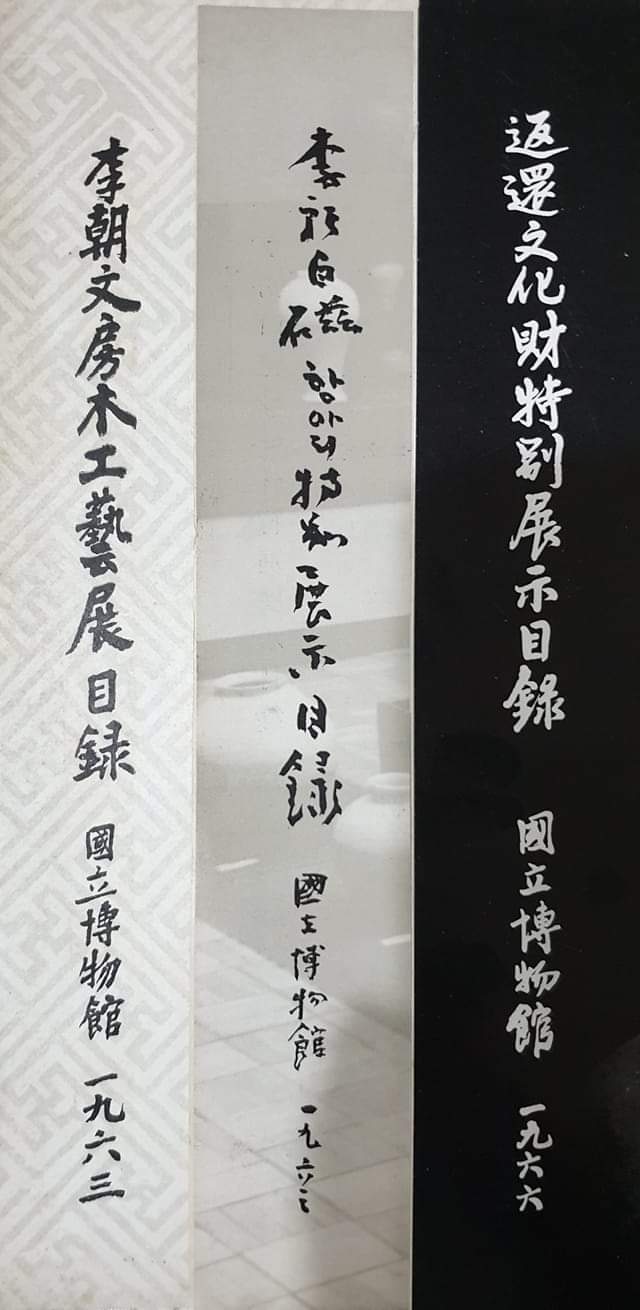 李朝文房木工藝展目録 國立博物館 一九六三
李朝白磁항아리特別展示目錄 國立博物館 一九六三
返還文化財特別展示目錄 國立博物館 一九六六